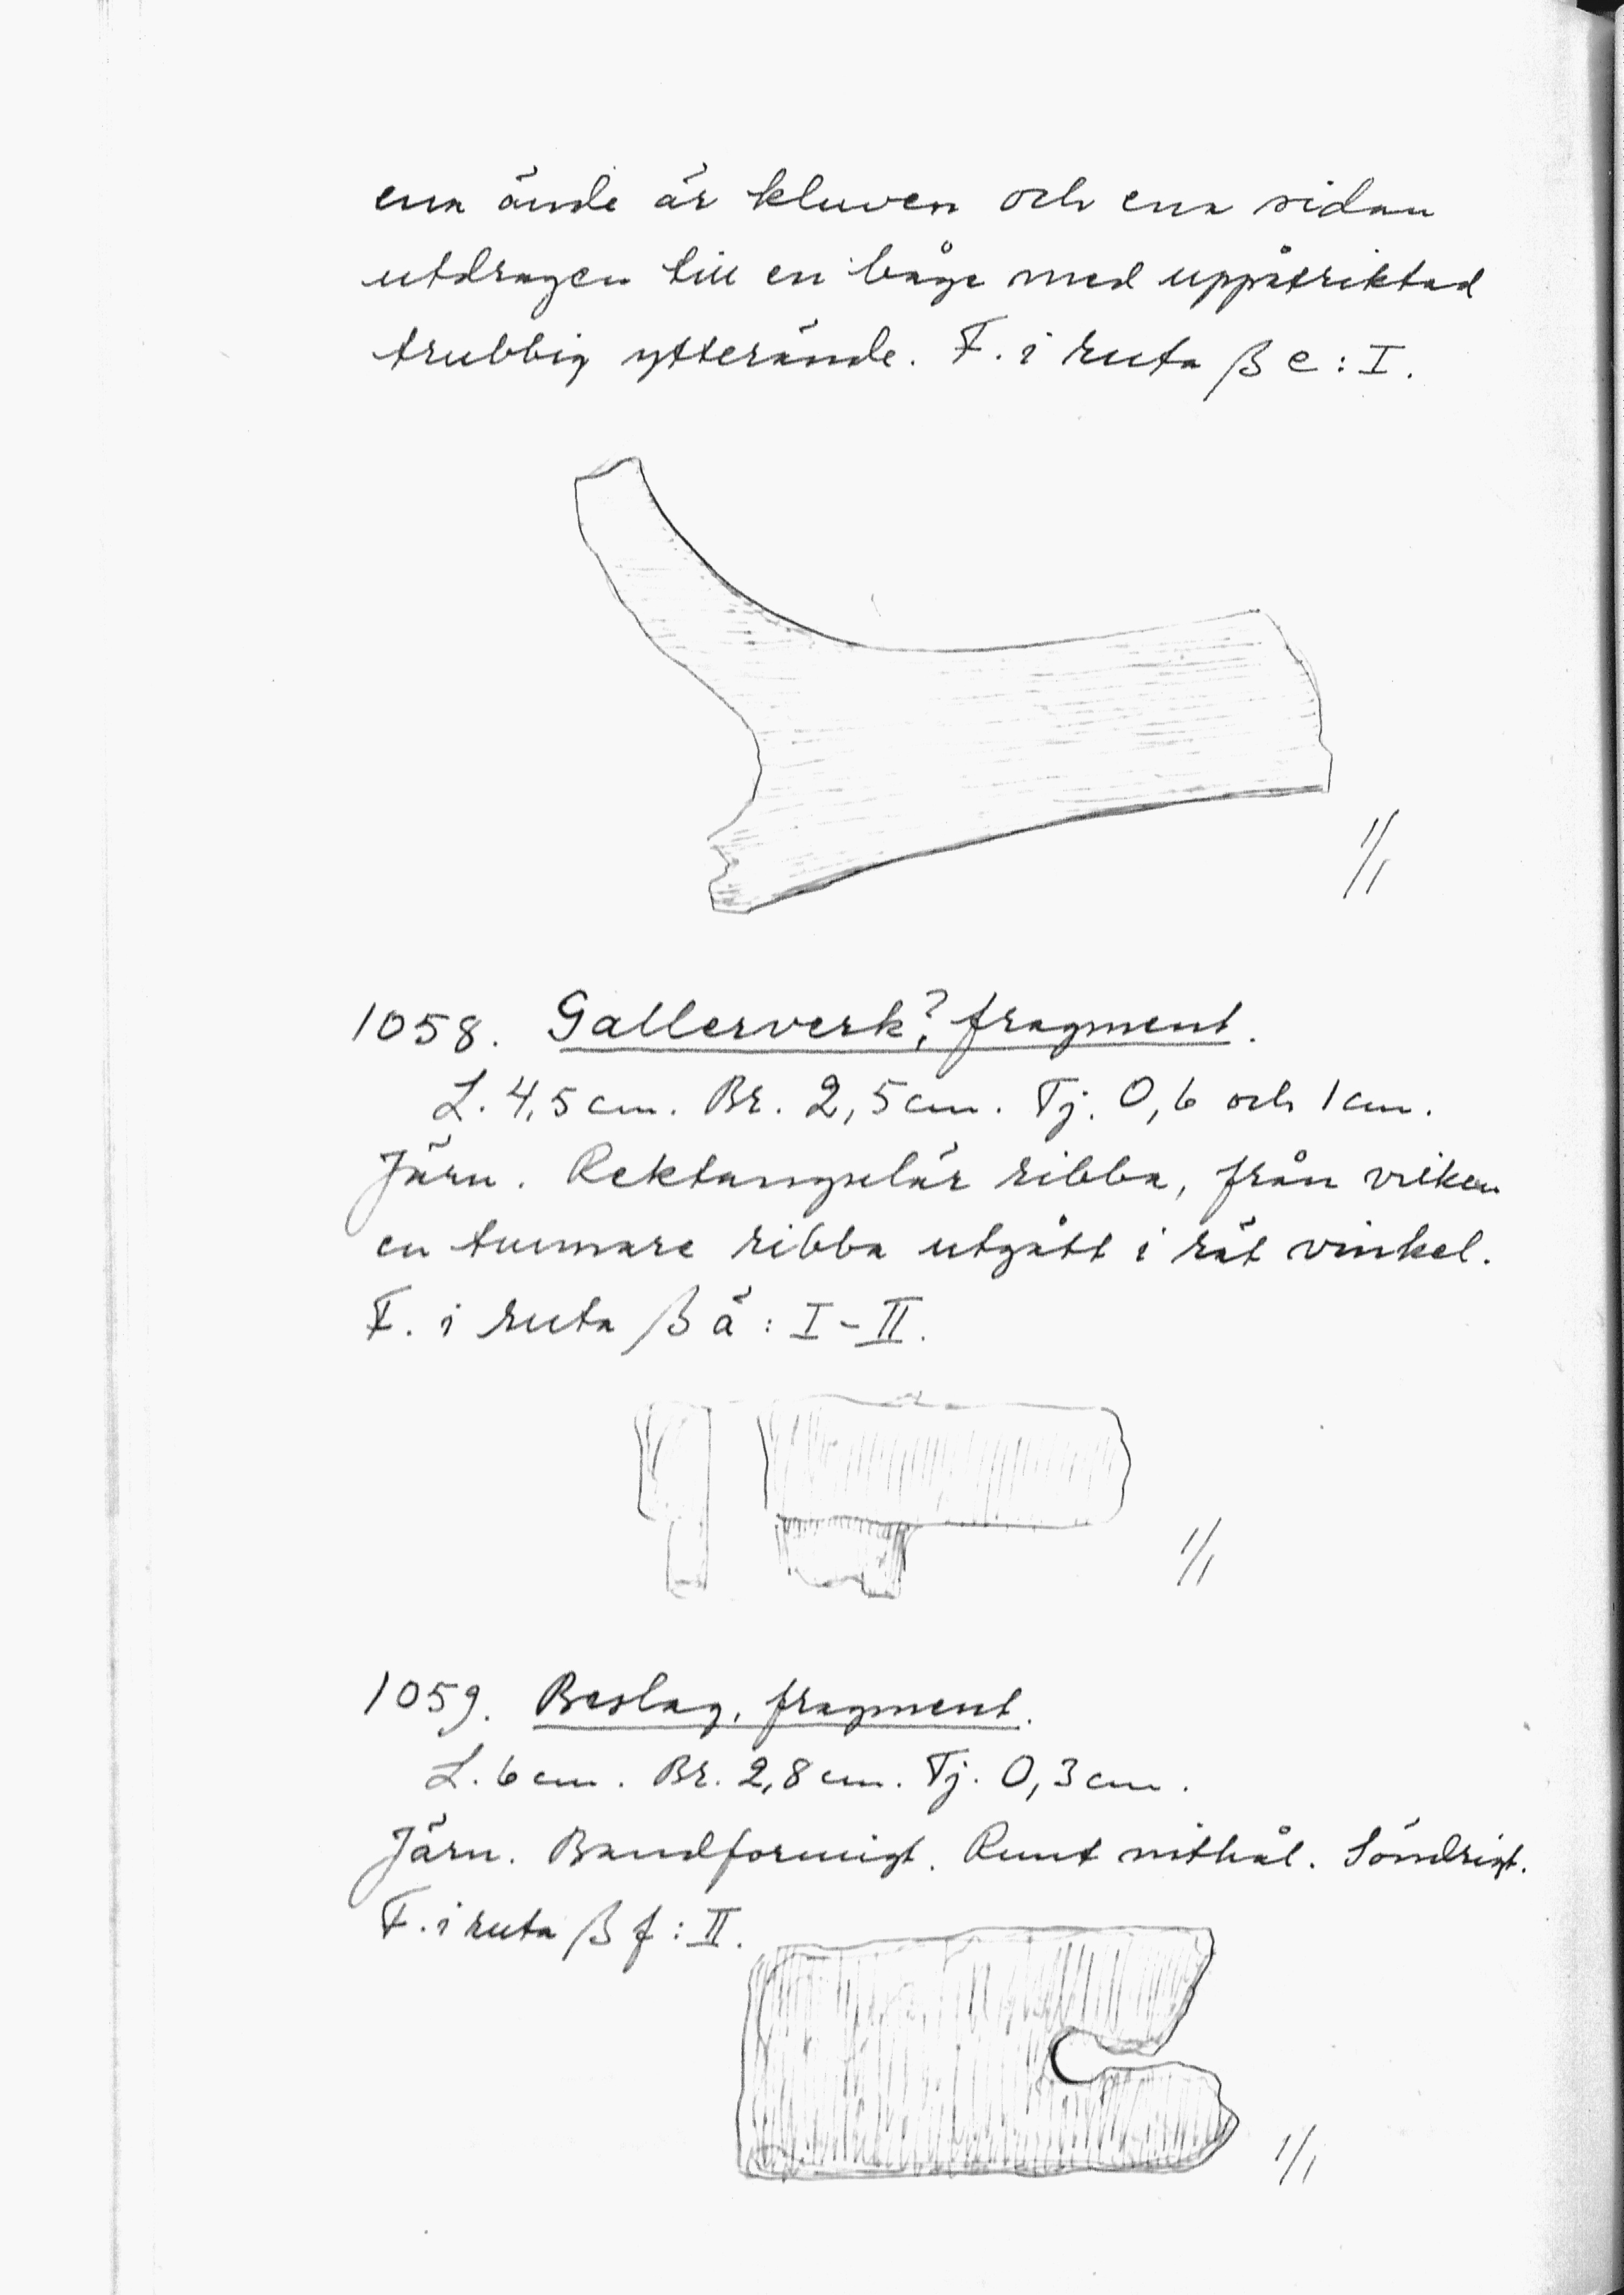 ena ände är kluven och ena sidan
utdragen till en båge med uppåtriktad
trubbig ytterände. F. i ruta β e : I.
1/1
1058. Gallerverk?, fragment.
L. 4,5 cm. Br. 2,5 cm. Tj. 0,6 och 1 cm.
Järn. Rektangulär ribba, från vilken
en tunnare ribba utgått i rät vinkel.
F. i ruta β ä : I-II.
1/1
1059. Beslag, fragment.
L. 6 cm. Br. 2,8 cm. Tj. 0,3 cm.
Järn. Bandformigt. Runt nithål. Söndrigt.
F. i ruta β f : II.
1/1